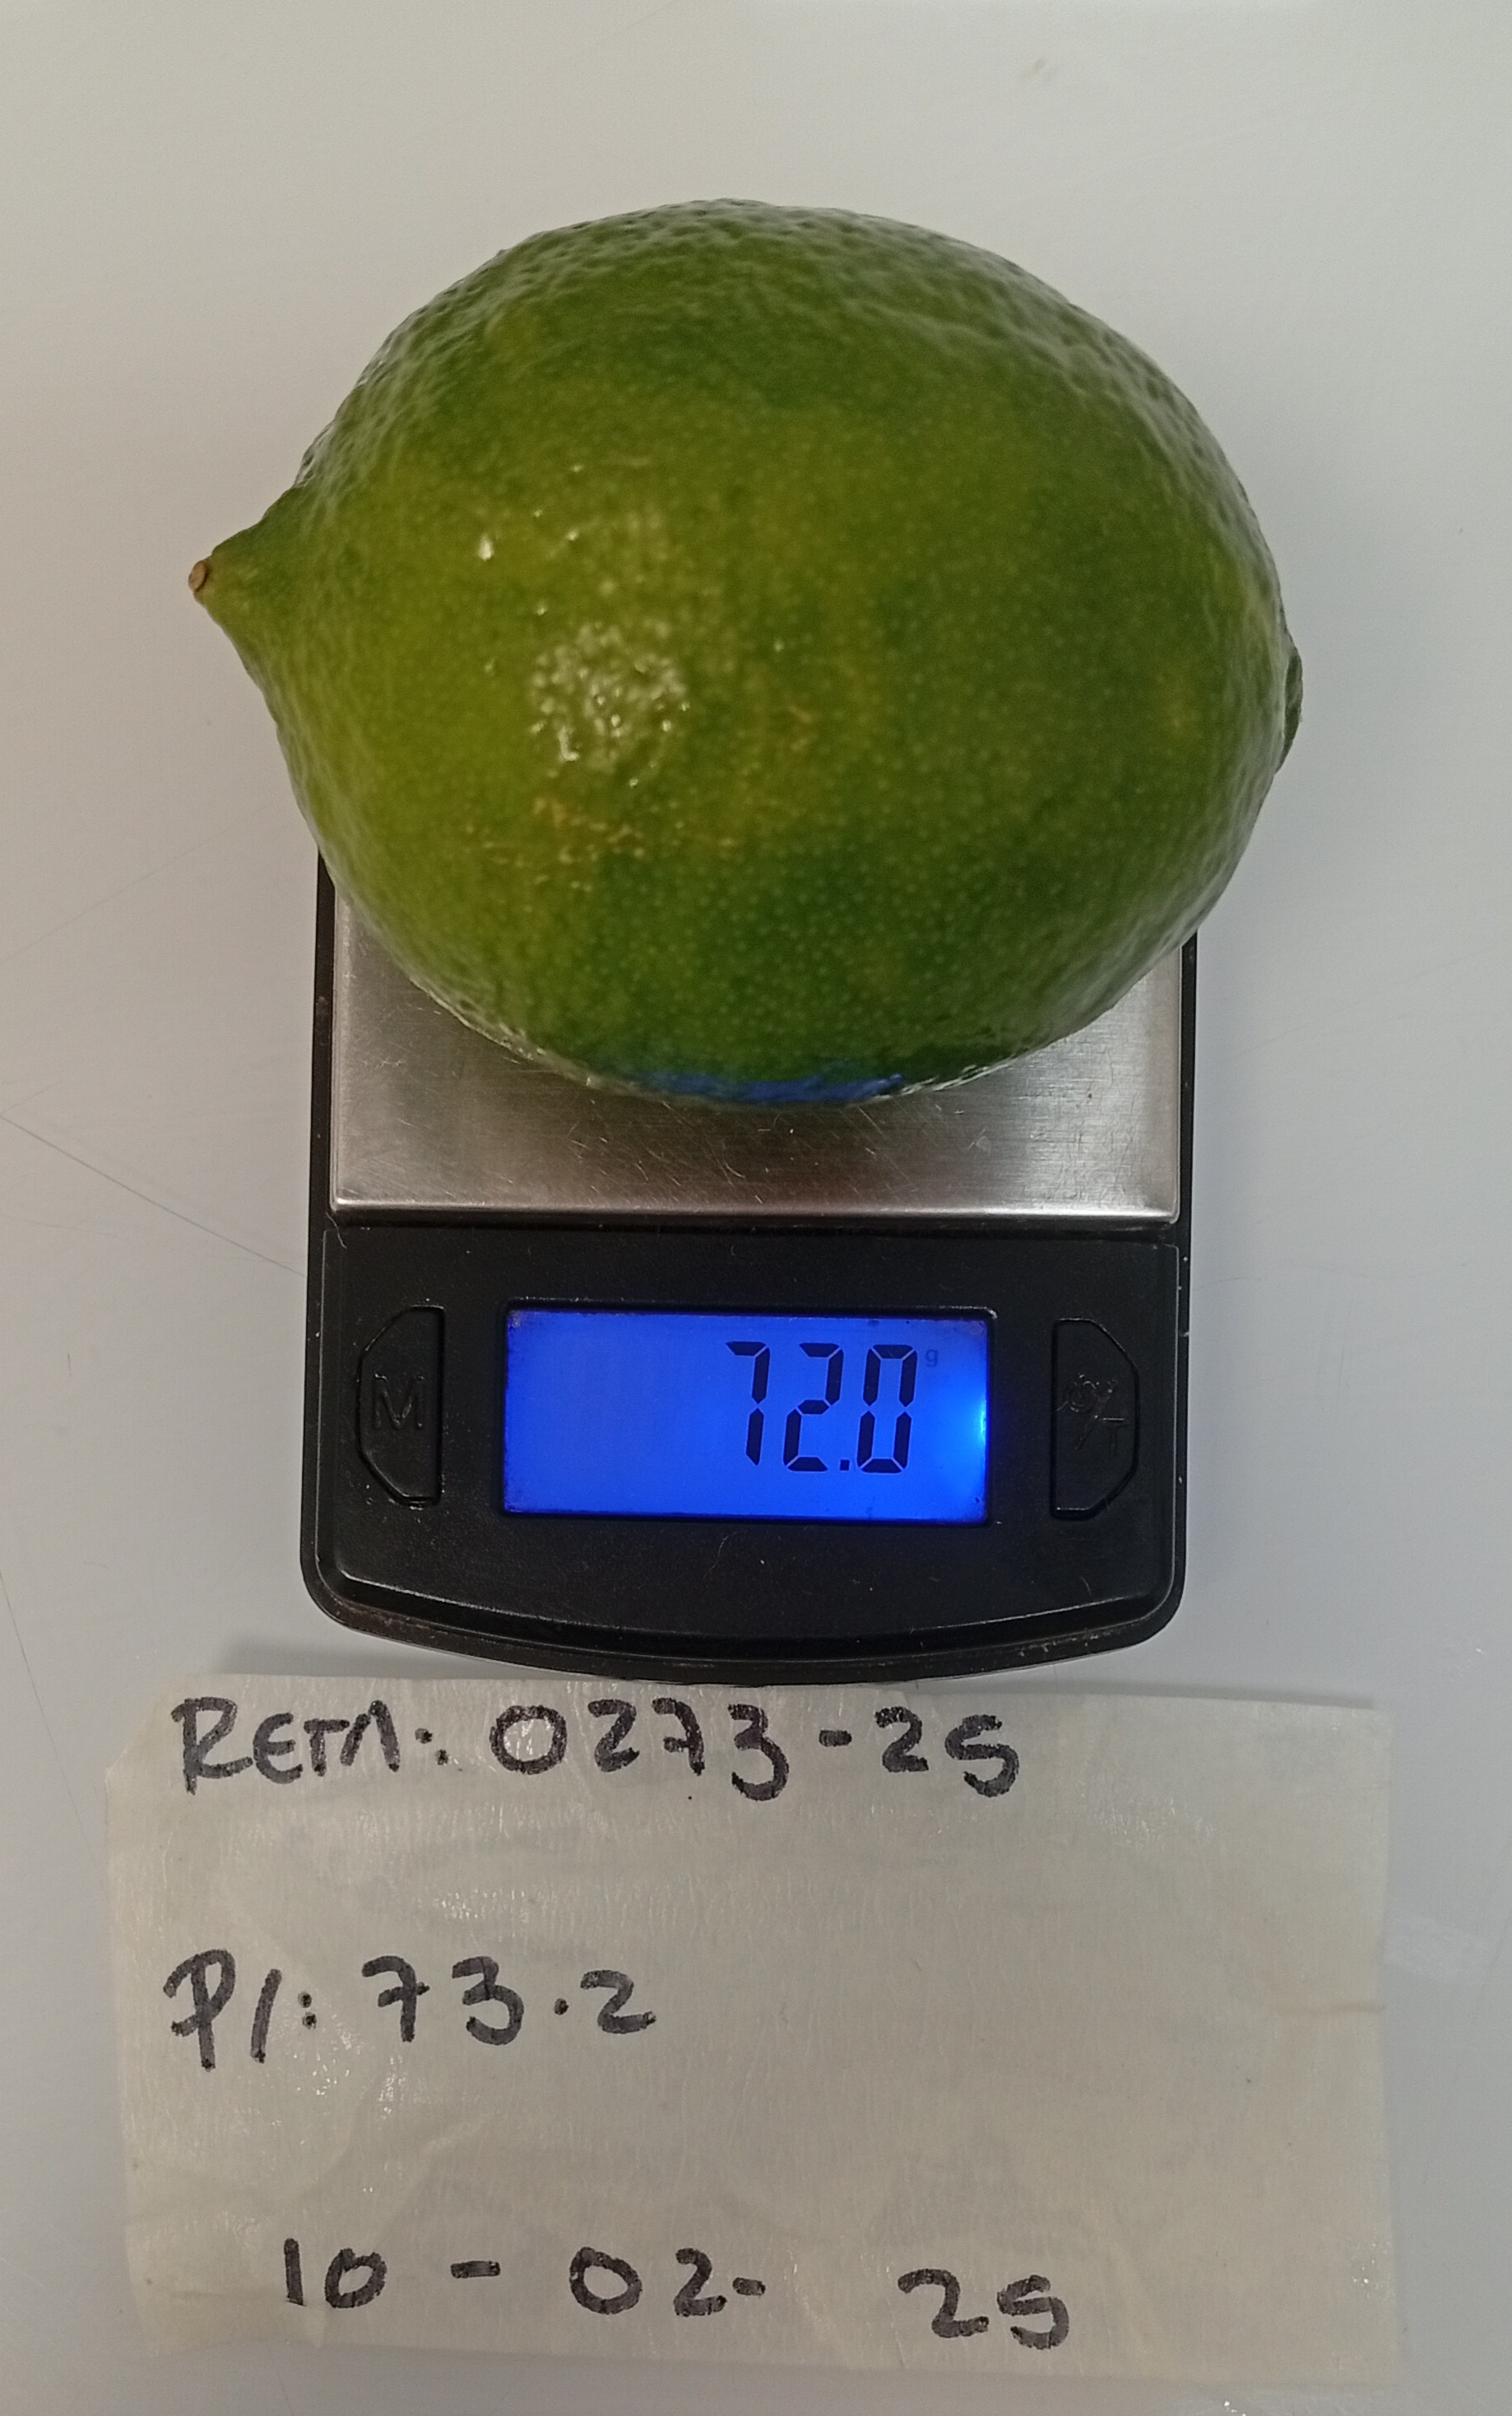 72.0 g
M
RETA: 0273-25
P/: 73.2
10 - 02- 25